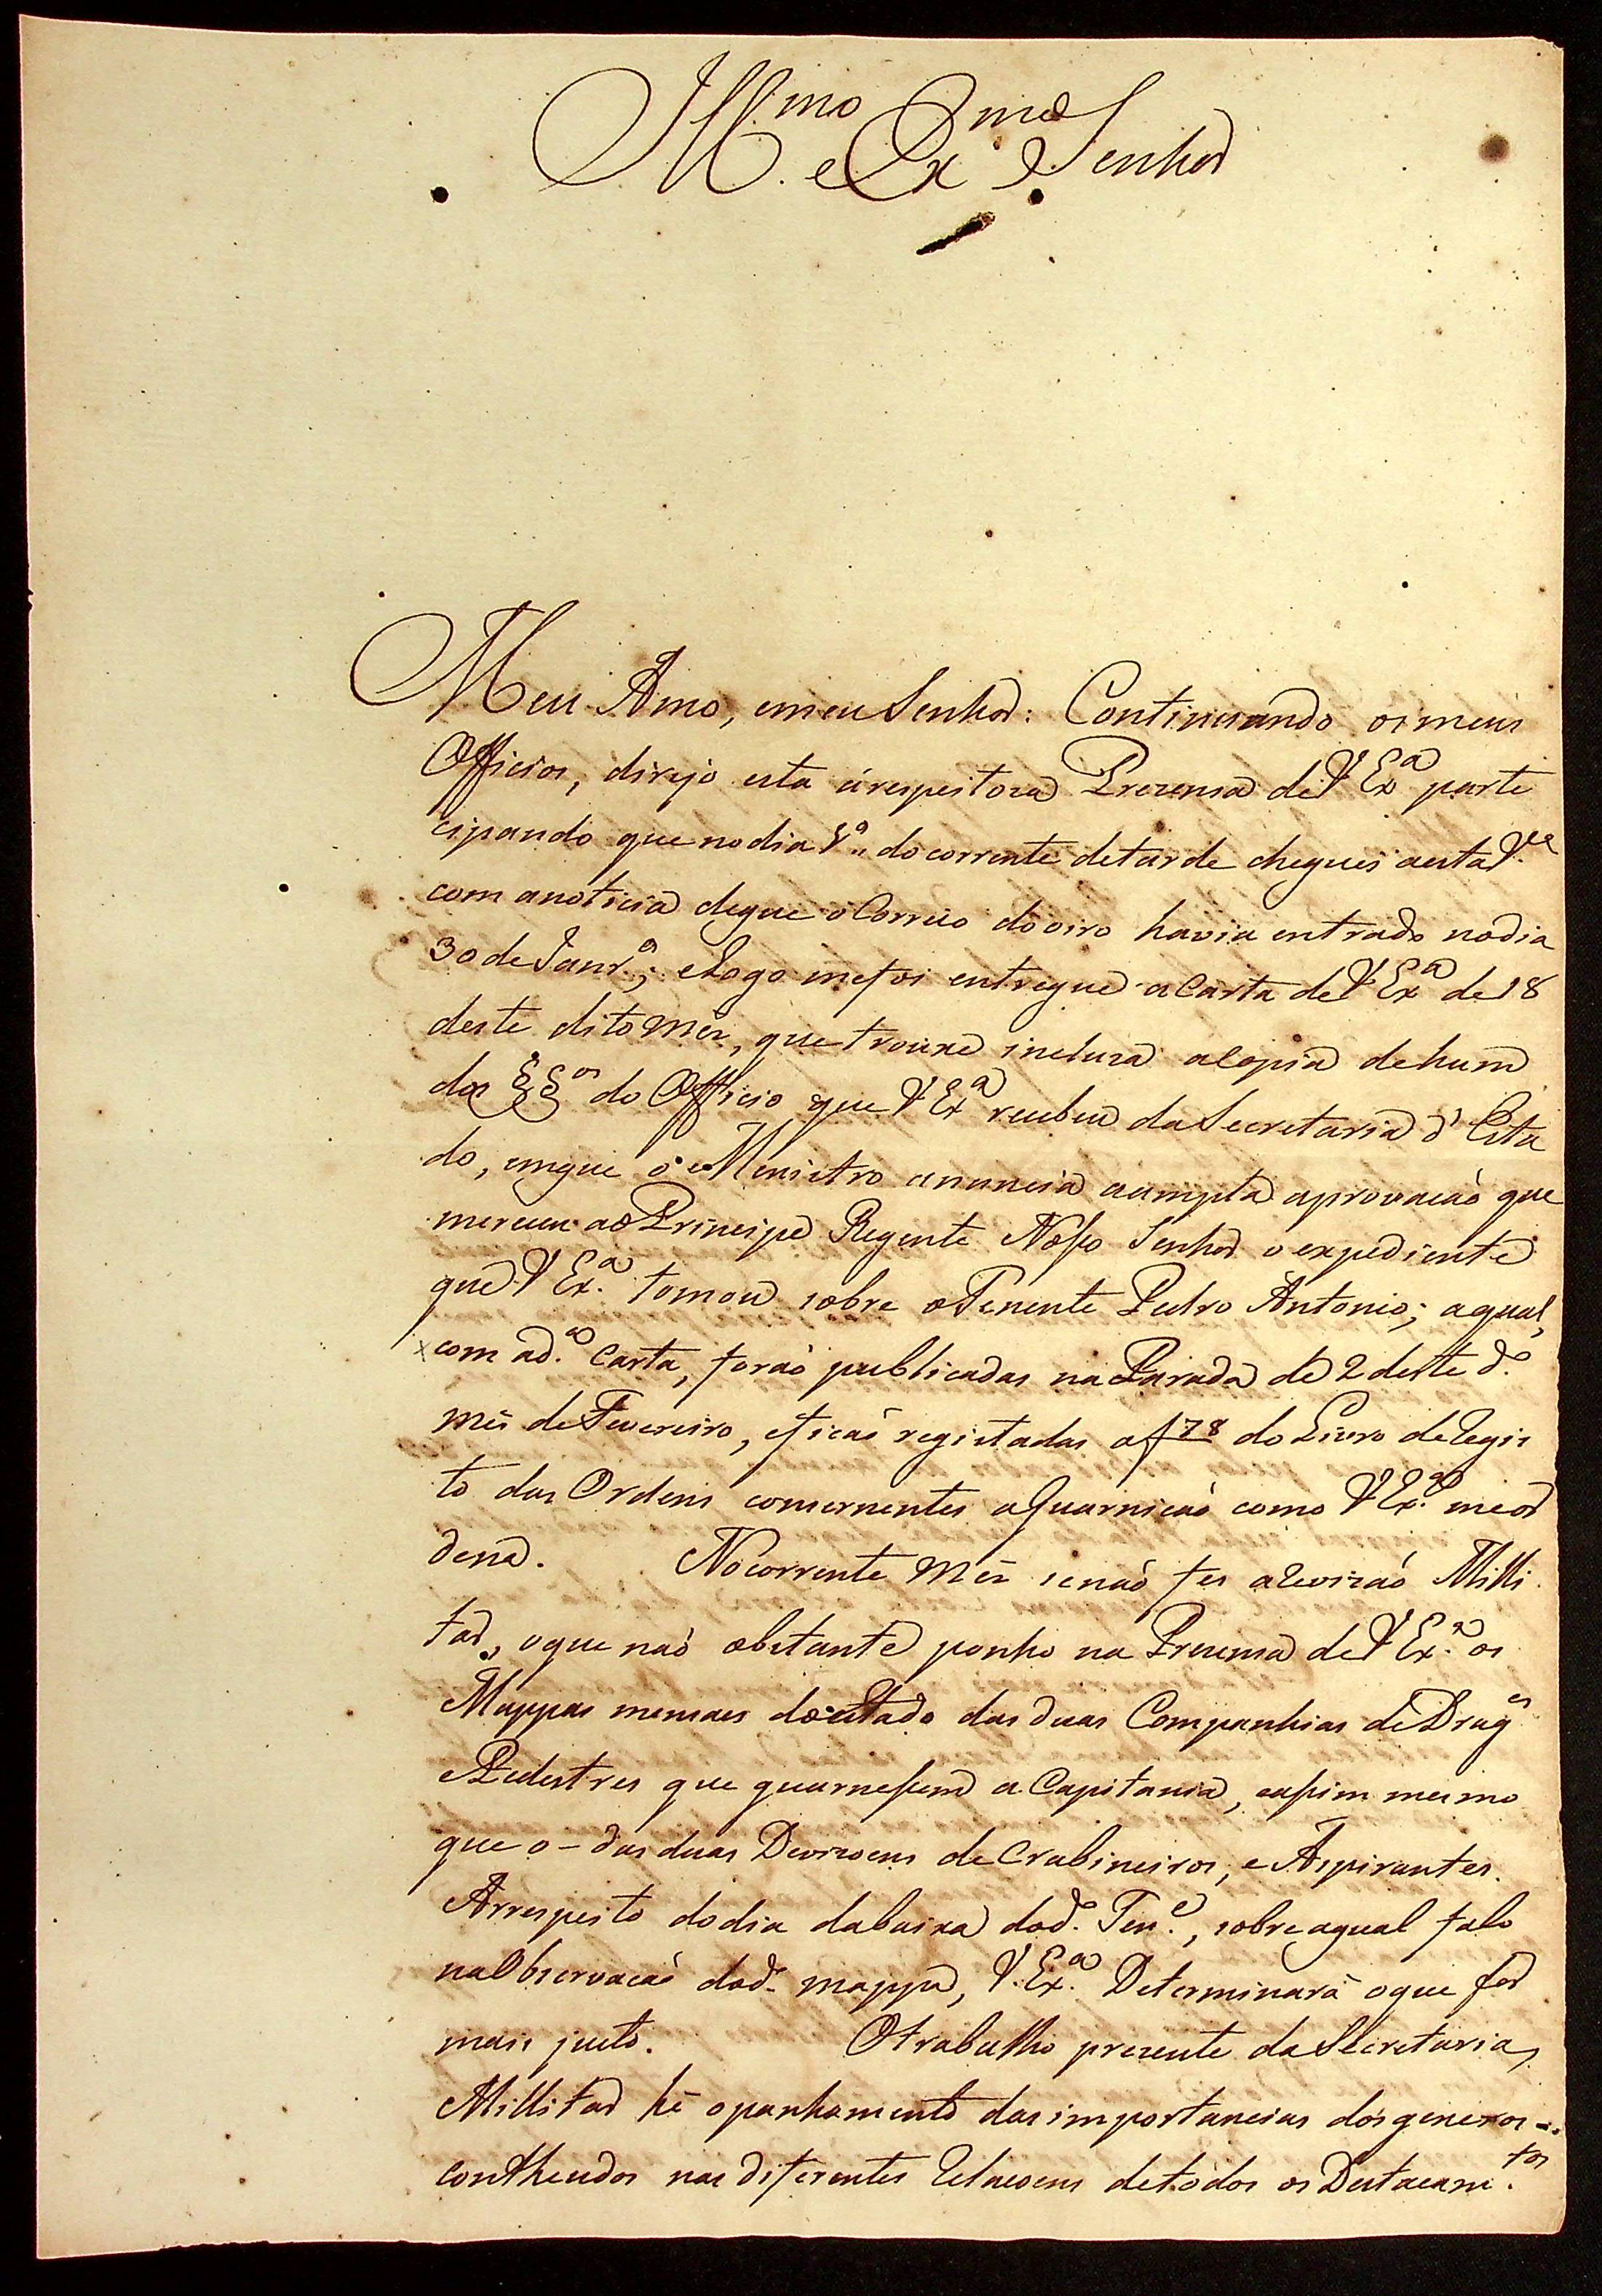 Ill.mo e Ex.mo Senhor
Meu Amo, emeu Senhor: Continuando os meus
Officios, dirijo esta árespeitoza Prezensa de V Ex.a parte
cipando que nodia 1.o do corrente detarde cheguei aesta V.a
com anoticia deque o Correio do oiro havia entrado nodia
30 de Janr.o; e Logo mefoi entregue a Carta de V Ex.a de 18
deste dito Mês, que trouxe incluza a Copia de hum
dos §§os do Officio que V Ex.a recebeu da Secretaria d'Esta
do, emque o Menistro anuncia aampla aprovacaõ que
mereceu ao Principe Regente Nosso Senhor o expediente
que V Ex.a tomou sobre o Tenente Pedro Antonio; aqual,
com ad.a Carta, foraõ publicadas na Parada de 2 deste d.o
mês de Fevereiro, eficaõ registadas a f 78 do Livro de Regis
to das Ordens consernentes a Guarnicaõ como V Ex.a meor
dena. No corrente Mês senaõ fes aRevizaõ Milli
tar, oque naõ obstante ponho na Prezensa de V Ex.a os
Mappas mensaes do estado das duas Companhias de Drag.es
e Pedestres que guarnessem a Capitania, eassim mesmo
que o - das duas Devizoens de Crabineiros, e Aspirantes.
Arrespeito dodia dabaixa dod.o Ten.e, sobre aqual falo
na Observacaõ dod.o mappa, V. Ex.a Determinará oque for
mais justo. O trabalho prezente da Secretaria
Millitar hé opanhamento das importancias dos generos -
conttheudos nas diferentes Relacoens detodos os Destacam.tos